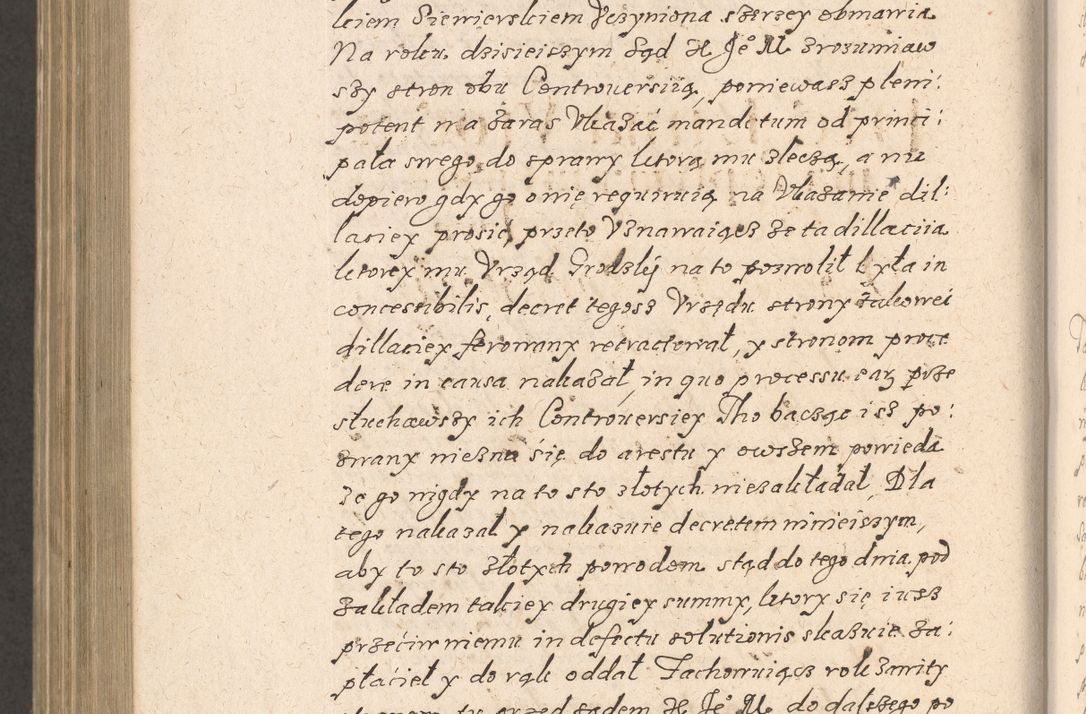 kiem Siemierskiem Vczyniona szerzey obmawia
Na roku dzisieiszym Sąd JE Je° M zrozumiaw
szy stron obu Controuersiią, poniewasz pleni:
potent ma zaras Vkazać mandatum od princi:
pała swego do sprawy ktorą mu zleczą, a nie
dopiero gdy go onię requiruią na Vkazanie dil:
laciey prosić, przeto Vznawaiącz że ta dillaciia
ktorey mu Vrząd Grodzky na to pozwolił byla in
concessibilis, decret tegosz Vrzędu strony takowei
dillaciey ferowany retractował, y stronom proce
dere in causa nakazał, in quo processu eary prze
słuchawszy ich Controuersiey Tho bacząc isz po:
zwany niezna się do arestu y owszem powieda
że go nigdy na to sto złotych niezakładał, Dla
tego nakazał y nakazuie decretem ninieiszym,
aby to sto złotych powodem stąd do tego dnia pod
zakładem takiey drugiey summy, ktory się iusz
przećiw niemu in defectu solutionis skazuie za:
płaćieł y do rąk oddał Zachowuiącz rok zawity
stronom tu przed sądem JE Je° M do dalszego po